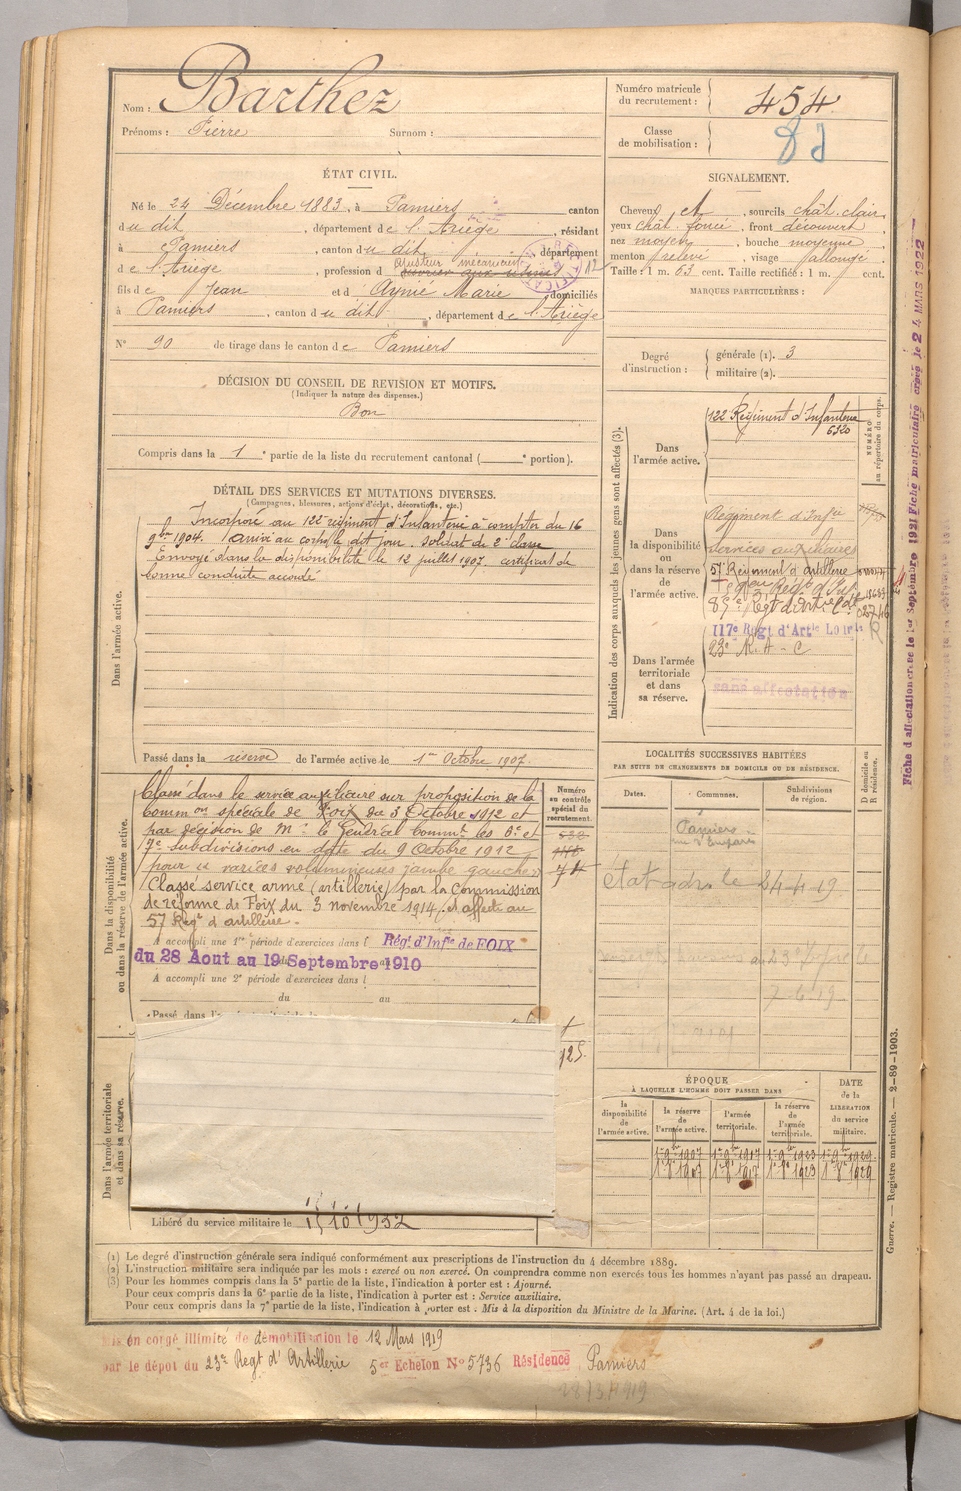 Nom : Barthez
Prénoms : Pierre Surnom :
Numéro matricule du recrutement : 454
Classe de mobilisation :
ÉTAT CIVIL.
Né le 24 Décembre 1883, à Pamiers canton
du dit, département de l'Ariège, résidant
à Pamiers, canton du dit, département
de l'Ariège, profession d ajusteur mécanicien
fils de Jean et d Aynié Marie domiciliés
à Pamiers, canton du dit, département de l'Ariège
N° 90 de tirage dans le canton de Pamiers
SIGNALEMENT.
Cheveux et, sourcils chât. clair,
yeux chât. foncé, front découvert,
nez moyen, bouche moyenne,
menton relevé, visage allongé
Taille : 1 m. 63 cent. Taille rectifiée : 1 m. cent.
MARQUES PARTICULIÈRES :
Degré d'instruction : générale (1). 3
militaire (2).
DÉCISION DU CONSEIL DE REVISION ET MOTIFS.
(Indiquer la nature des dispenses.)
Bon
Compris dans la 1e partie de la liste du recrutement cantonal ( e portion).
DÉTAIL DES SERVICES ET MUTATIONS DIVERSES.
(Campagnes, blessures, actions d'éclat, décorations, etc.)
Dans l'armée active.
Incorporé au 122e régiment d'Infanterie à compter du 16
9bre 1904. Arrivé au corps le dit jour. Soldat de 2e classe
Envoyé dans la disponibilité le 12 juillet 1907, certificat de
bonne conduite accordé
Passé dans la réserve de l'armée active le 1er Octobre 1907.
Indication des corps auxquels les jeunes gens sont affectés (3).
NUMÉRO au répertoire du corps.
Dans l'armée active.
122 Régiment d'Infanterie
6320
Dans la disponibilité ou dans la réserve de l'armée active.
Régiment d'Infie
Services auxiliaires
57e Régiment d'artillerie
117e Regt d'Artie Lourde
23e R.A.C
Dans l'armée territoriale et dans sa réserve.
sans affectation
Dans la disponibilité ou dans la réserve de l'armée active.
Classé dans le service auxiliaire sur proposition de la
Common spéciale de Foix du 3 Octobre 1912 et
par décision de Mr le Général Commt les 6e et
7e subdivisions en date du 9 Octobre 1912
pour varices volumineuses jambe gauche
Classé service armé (artillerie) par la Commission
de réforme de Foix du 3 novembre 1914 et affecté au
57 Regt d'artillerie.
A accompli une 1re période d'exercices dans l Régt d'Infie de FOIX
du 28 Aout au 19 Septembre 1910
A accompli une 2e période d'exercices dans l
du au
Numéro au contrôle spécial du recrutement.
LOCALITÉS SUCCESSIVES HABITÉES
PAR SUITE DE CHANGEMENTS DE DOMICILE OU DE RÉSIDENCE.
Dates. Communes. Subdivisions de région. D domicile ou R résidence.
Pamiers
7-6-19
ÉPOQUE
À LAQUELLE L'HOMME DOIT PASSER DANS
la disponibilité de l'armée active. la réserve de l'armée active. l'armée territoriale. la réserve de l'armée territoriale. DATE de la LIBÉRATION du service militaire.
1er 9bre 1907 1er 9bre 1917 1er 9bre 1923 1er 9bre 1929
1er 8bre 1907 1er 8bre 1917 1er 8bre 1923 1er 8bre 1929
Dans l'armée territoriale et dans sa réserve.
Libéré du service militaire le 15 10 1932
(1) Le degré d'instruction générale sera indiqué conformément aux prescriptions de l'instruction du 4 décembre 1889.
(2) L'instruction militaire sera indiquée par les mots : exercé ou non exercé. On comprendra comme non exercés tous les hommes n'ayant pas passé au drapeau.
(3) Pour les hommes compris dans la 5e partie de la liste, l'indication à porter est : Ajourné.
Pour ceux compris dans la 6e partie de la liste, l'indication à porter est : Service auxiliaire.
Pour ceux compris dans la 7e partie de la liste, l'indication à porter est : Mis à la disposition du Ministre de la Marine. (Art. 4 de la loi.)
Mis en congé illimité de démobilisation le 12 Mars 1919
par le dépot du 23e Regt d'Artillerie 5er Echelon N° 5736 Résidence Pamiers
Guerre. — Registre matricule. — 2-89-1903.
Fiche d'affectation créée le 1er Septembre 1921 Fiche matriculaire créée le 24 MARS 1922